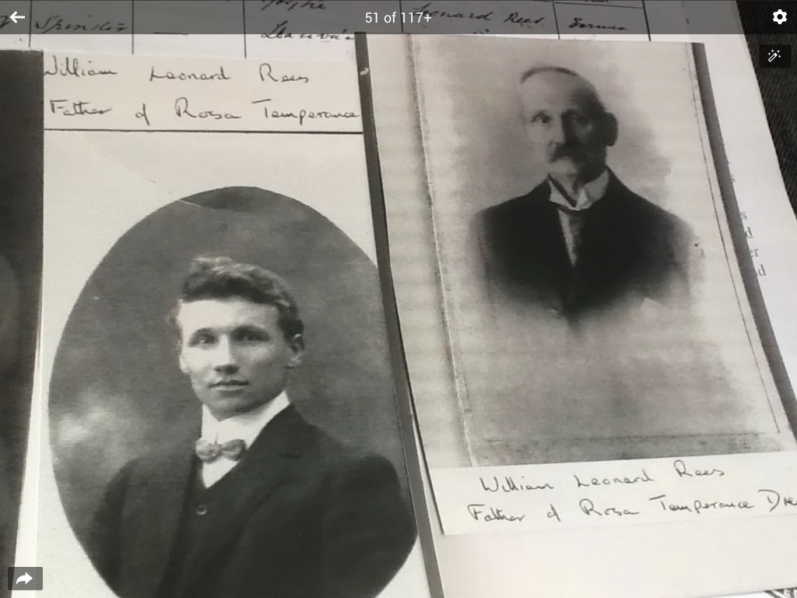 51 of 117+
Spinster
Leonard Rees
Farmer
William Leonard Rees
Father of Rosa Temperance
William Leonard Rees
Father of Rosa Temperance